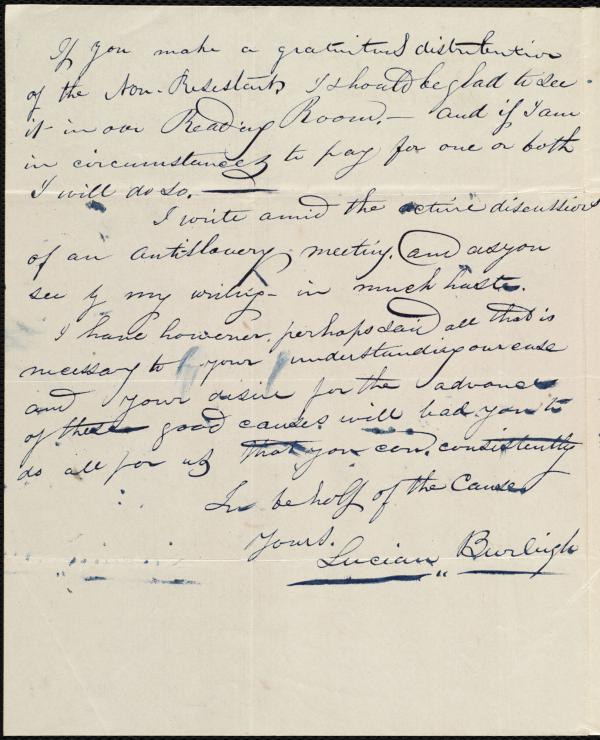 If you make a gratuitous distribution
of the Non-Resistant, I should be glad to see
it in our Reading Room. — and if I am
in circumstances to pay for one or both
I will do so.
I write amid the active discussions
of an antislavery meeting, and as you
see by my writing - in much haste.
I have however, perhaps said all that is
necessary to your understanding our case
and your desire for the advance
of these good causes will lead you to
do all for us that you can, consistently
In behalf of the Cause
Yours.
Lucian Burleigh